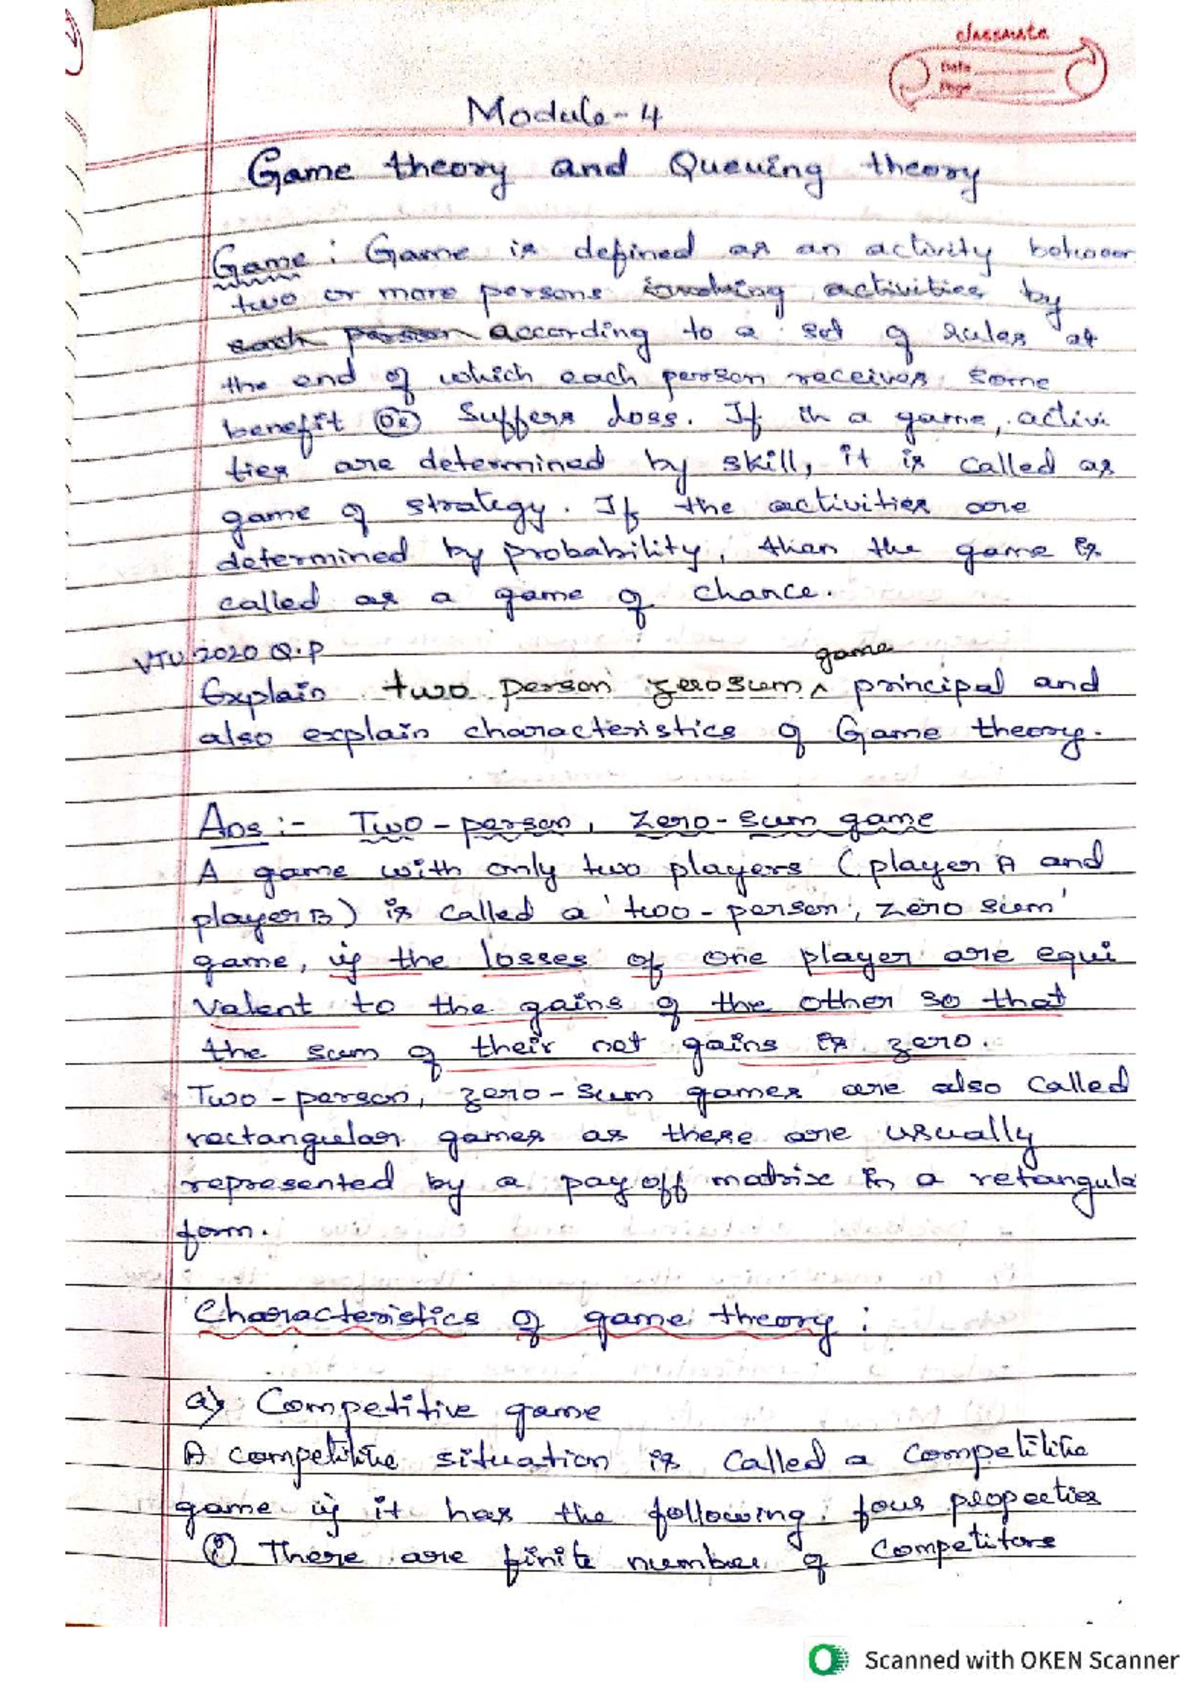 classmate
Date
Page
Module-4
Game theory and Queuing theory
Game : Game is defined as an activity between
two or more persons involving activities by
each person according to a set of rules at
the end of which each person receives some
benefit Or suffers loss. If in a game, activi
ties are determined by skill, it is called as
game of strategy. If the activities are
determined by probability, then the game is
called as a game of chance.
VTU 2020 Q.P
game
Explain two person zerosum ^ principal and
also explain characteristics of Game theory.
Ans :- Two-person, Zero-sum game
A game with only two players (player A and
player B) is called a 'two-person, zero sum'
game, if the losses of one player are equi
valent to the gains of the other so that
the sum of their net gains is zero.
Two-person, zero-sum games are also called
rectangular games as these are usually
represented by a pay off matrix in a retangula
form.
Characteristics of game theory :
a) Competitive game
A competitive situation is called a competitive
game if it has the following four properties
(i) There are finite number of Competitors
Scanned with OKEN Scanner